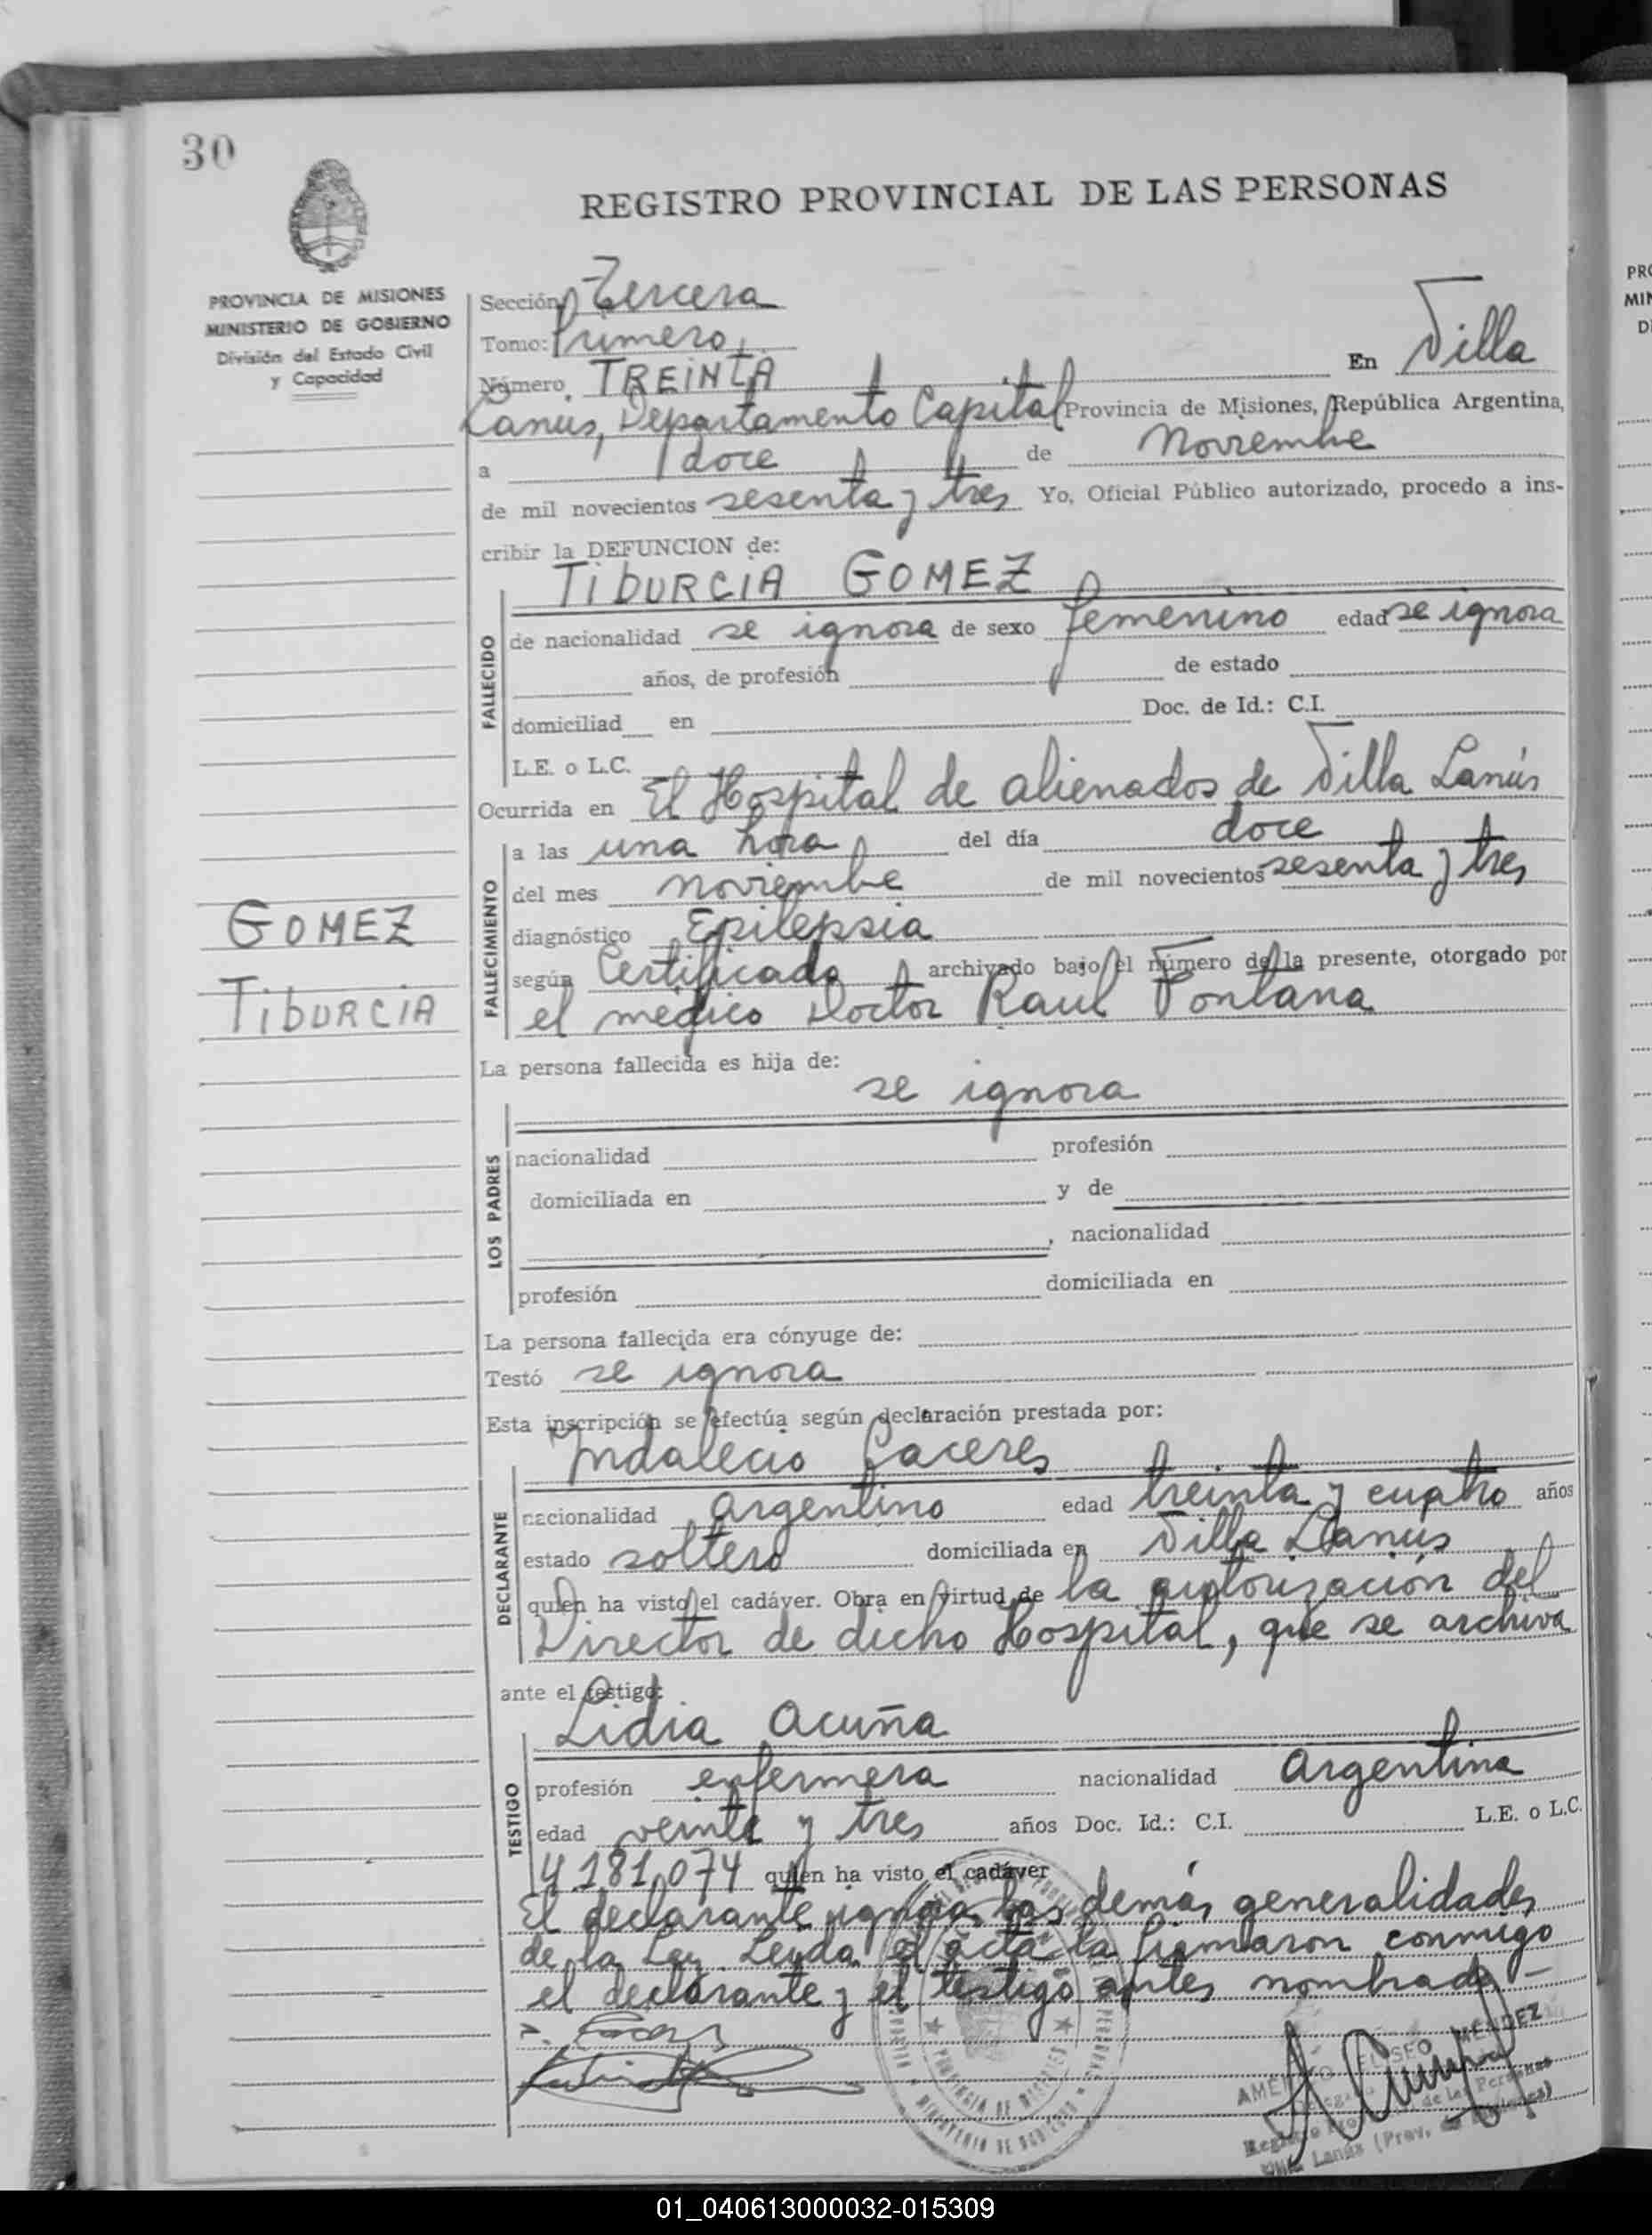 30
REGISTRO PROVINCIAL DE LAS PERSONAS
PROVINCIA DE MISIONES
MINISTERIO DE GOBIERNO
División del Estado Civil
y Capacidad
Sección Tercera
Tomo: Primero
Número TREINTA En Villa
Lanús, Departamento Capital Provincia de Misiones, República Argentina,
a doce de Noviembre
de mil novecientos sesenta y tres Yo, Oficial Público autorizado, procedo a ins-
cribir la DEFUNCION de:
TIBURCIA GOMEZ
FALLECIDO
de nacionalidad se ignora de sexo femenino edad se ignora
años, de profesión de estado
domiciliad en Doc. de Id.: C.I.
L.E. o L.C.
Ocurrida en El Hospital de alienados de Villa Lanús
FALLECIMIENTO
a las una hora del día doce
del mes noviembre de mil novecientos sesenta y tres
diagnóstico Epilepsia
según Certificado archivado bajo el número de la presente, otorgado por
el médico Doctor Raul Fontana
GOMEZ
TIBURCIA
La persona fallecida es hija de:
se ignora
LOS PADRES
nacionalidad profesión
domiciliada en y de
, nacionalidad
profesión domiciliada en
La persona fallecida era cónyuge de:
Testó se ignora
Esta inscripción se efectúa según declaración prestada por:
Indalecio Caceres
DECLARANTE
nacionalidad argentino edad treinta y cuatro años
estado soltero domiciliada en Villa Lanús
quien ha visto el cadáver. Obra en virtud de la autorización del
Director de dicho Hospital, que se archiva
ante el testigo:
Lidia Acuña
TESTIGO
profesión enfermera nacionalidad Argentina
edad veinte y tres años Doc. Id.: C.I. L.E. o L.C.
4.181.074 quien ha visto el cadáver
El declarante ignora las demás generalidades
de la Ley. Leyda el acta la firmaron conmigo
el declarante y el testigo antes nombrado -
PROVINCIA DE MISIONES
MINISTERIO DE GOBIERNO
ELISEO MENDEZ
de las Personas
Villa Lanús (Prov. de Misiones)
PRO
MIN
D
01_040613000032-015309